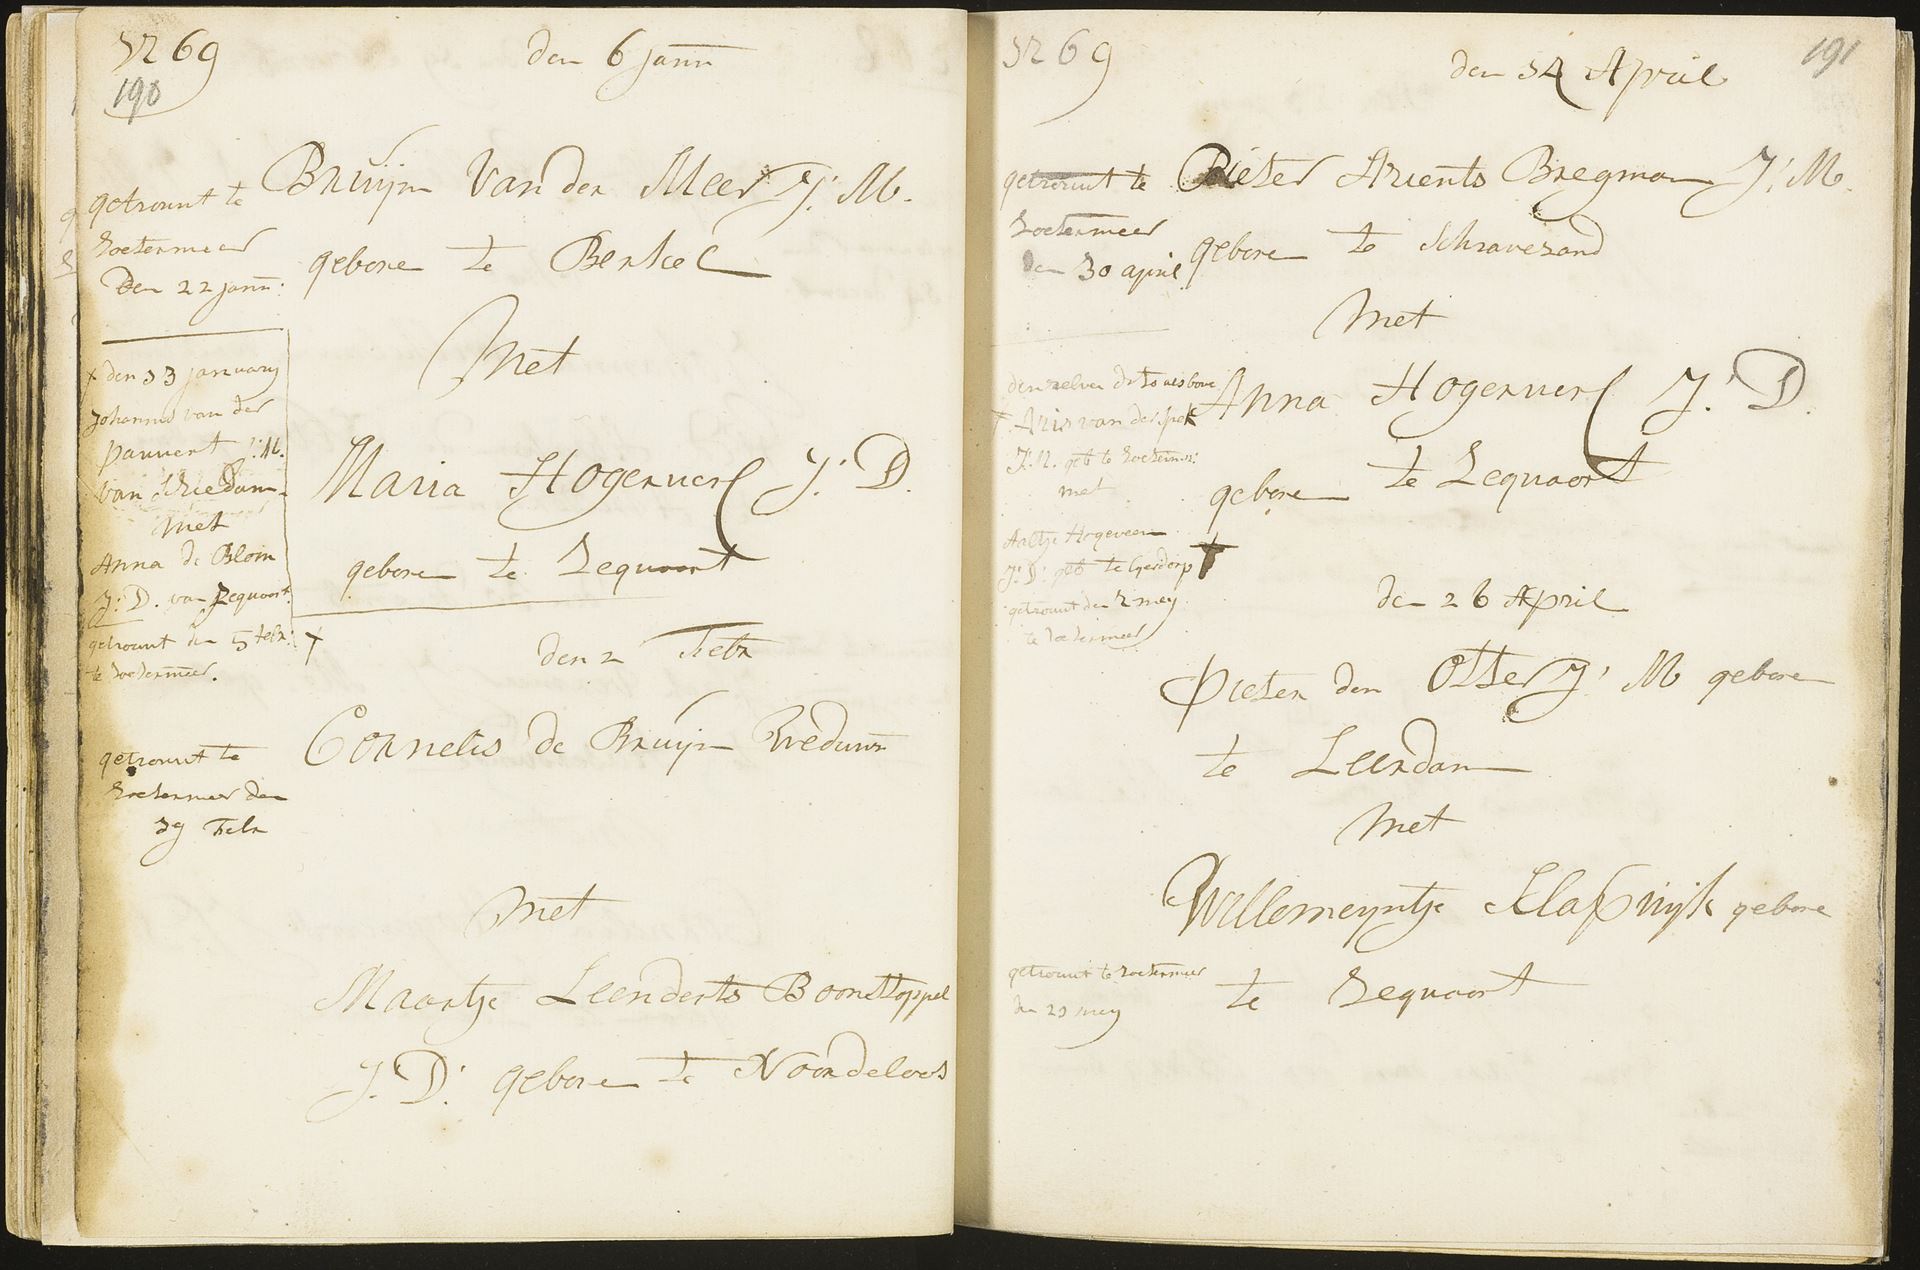 1769
190
den 6 jann
getrouut te
Zoetermeer
Den 22 jann:
Bruijn Van der Meer J: M.
gebore te Berkel
Met
Maria Hogerwerf J: D.
gebore te Zegwaart
+ den 13 january
Johannis van der
pauwert j: M.
van Schiedam
met
Anna de Blom
J: D. van Zegwaart.
getrouut den 5 febr:
te Zoetermeer.
+
den 2 Febr
getrouut te
Zoetermeer den
19 Febr
Cornelis de Bruijn Weduwr
met
Maartje Leenderts Boonstoppel
J: D: gebore te Noordeloos
1769
191
den 14 April
getrouut te
Zoetermeer
den 30 april
Pieter Arients Bregman J: M.
gebore te Schravesand
Met
Anna Hogerwerf J: D.
gebore te Zegwaart
den zelven dito als bove
+ Aris van der spek
J: M. geb te Zoeterm:
met
Aaltje Hogeveen
J: D: geb te
getrouut den 7 mey
te Zoetermeer
+
den 26 April
Pieter den Otter J: M gebore
te Leerdam
Met
Willemeyntje Klapwijk gebore
te Zegwaart
getrouut te Zoetermeer
den 21 mey